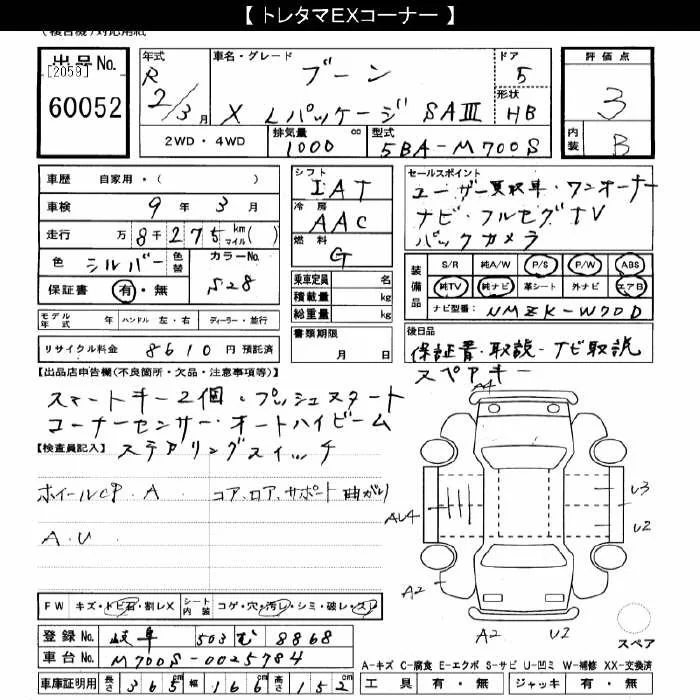 【 トレタマEXコーナー 】
(複合機)対応用紙
出品No. [2059] 60052
年式 R 2/3月
車名・グレード ブーン
X Lパッケージ SAⅢ
ドア 5
形状 HB
2WD・4WD 排気量 1000 cc 型式 5BA-M700S
評価点 3
内装 B
車歴 自家用・( )
車検 9年3月
走行 万8千275 km マイル( )
色 シルバー 色替 カラーNo. S28
保証書 有・無
モデル年式 年 ハンドル 左・右 ディーラー・並行
リサイクル料金 8610円預託済
シフト IAT
冷房 AAC
燃料 G
乗車定員 名
積載量 kg
総重量 kg
書類期限 月 日
セールスポイント
ユーザー買取車・ワンオーナー
ナビ・フルセグTV
バックカメラ
装備品 S/R 純A/W P/S P/W ABS
純TV 純ナビ 革シート 外ナビ エアB
ナビ型番: NMZK-W70D
後日品
保証書・取説・ナビ取説
スペアキー
【出品店申告欄(不良箇所・欠品・注意事項等)】
スマートキー2個・プッシュスタート
コーナーセンサー・オートハイビーム
ステアリングスイッチ
【検査員記入】
ホイールCP.A. コア、ロア、サポート曲がり
A.U
A4
AU4
U3
U2
A2
A2 U2
スペア
FW キズ・トビ石・割レX シート内装 コゲ・穴・汚レ・シミ・破レ・スレ
登録No. 岐阜 503 む 8868
車台No. M700S-0025784
車庫証明用 長さ 365 幅 166 高さ 152 cm
A-キズ C-腐食 E-エクボ S-サビ U-凹ミ W-補修 XX-交換済
工具 有・無 ジャッキ 有・無